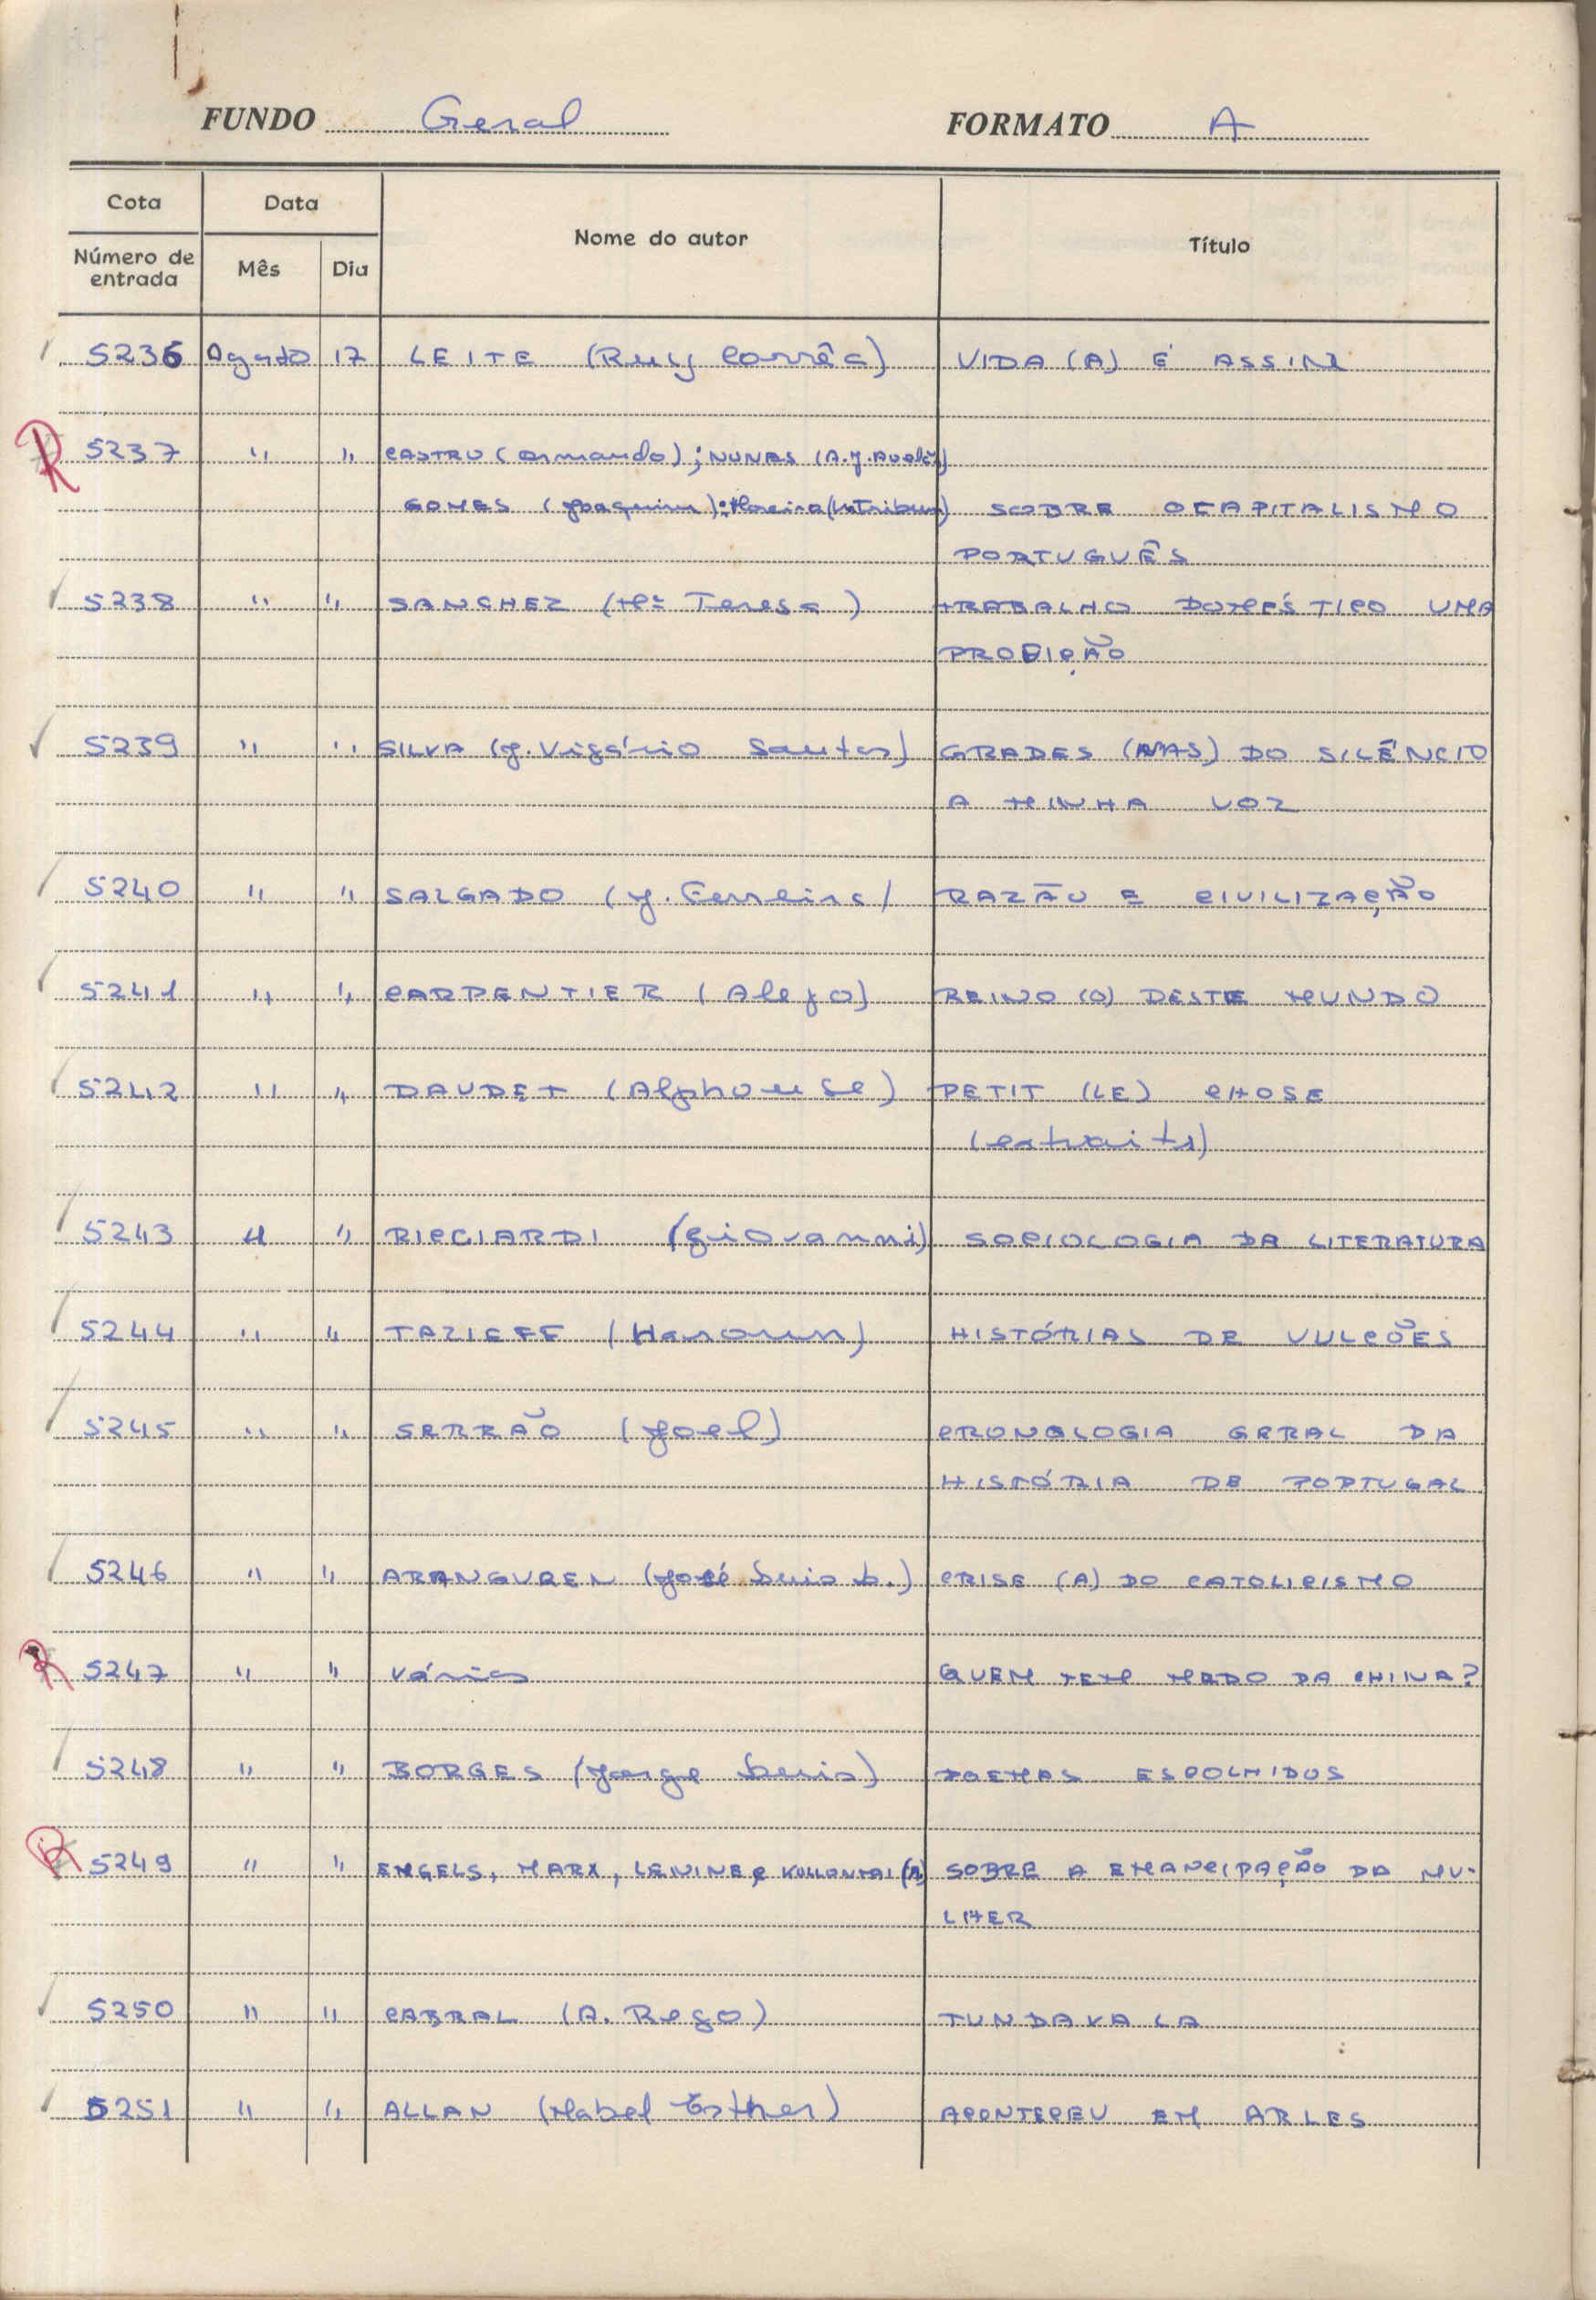 FUNDO Geral FORMATO A
Cota Data Nome do autor Título
Número de entrada Mês Dia
5236 Agosto 17 LEITE (Ruy Corrêa) VIDA (A) É ASSIM
R 5237 " " CASTRO (Armando); NUNES (A.J.
GOMES (Joaquim); Moreira SOBRE O CAPITALISMO
PORTUGUÊS
5238 " " SANCHEZ (Mª Teresa) TRABALHO DOMÉSTICO UMA
5239 " " SILVA (J. Vigário Santos) GRADES (NAS) DO SILÊNCIO
A MINHA VOZ
5240 " " SALGADO (J. Ferreira) RAZÃO E CIVILIZAÇÃO
5241 " " CARPENTIER (Alejo) REINO (O) DESTE MUNDO
5242 " " DAUDET (Alphonse) PETIT (LE) CHOSE
(extraits)
5243 " " RICCIARDI (Giovanni) SOCIOLOGIA DA LITERATURA
5244 " " TAZIEFF (Haroun) HISTÓRIAS DE VULCÕES
5245 " " SERRÃO (Joel) CRONOLOGIA GERAL DA
HISTÓRIA DE PORTUGAL
5246 " " ARANGUREN (José Luis L.) CRISE (A) DO CATOLICISMO
R 5247 " " Vários QUEM TEM MEDO DA CHINA?
5248 " " BORGES (Jorge Luis) POEMAS ESCOLHIDOS
R 5249 " " ENGELS, MARX, LENINE e KOLLONTAI (A) SOBRE A EMANCIPAÇÃO DA MU-
LHER
5250 " " CABRAL (A. Rego) TUNDAVALA
5251 " " ALLAN (Mabel Esther) ACONTECEU EM ARLES